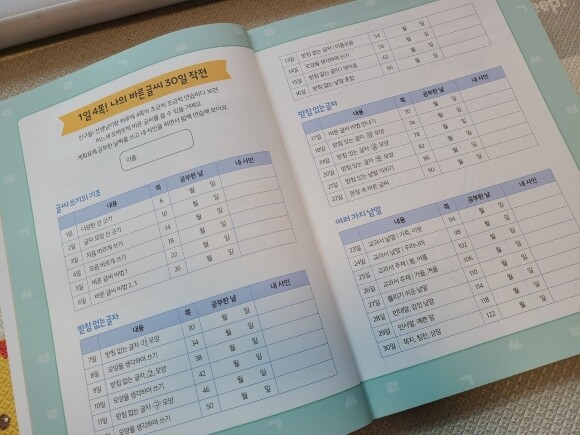 1일 4쪽! 나의 바른 글씨 30일 작전
이름
글씨 쓰기의 기초
내용 쪽 공부한 날 내 사인
1일 다양한 선 긋기 6 월 일
2일 글자 모양 선 긋기 10 월 일
3일 자음 바르게 쓰기 14 월 일
4일 모음 바르게 쓰기 18 월 일
5일 바른 글씨 비법 1 22 월 일
6일 바른 글씨 비법 2, 3 26 월 일
받침 없는 글자
내용 쪽 공부한 날 내 사인
7일 받침 없는 글자 모양 30 월 일
8일 모양을 생각하며 쓰기 34 월 일
9일 받침 없는 글자 모양 38 월 일
10일 모양을 생각하며 쓰기 42 월 일
11일 받침 없는 글자 모양 46 월 일
모양을 생각하며 쓰기 50 월 일
13일 받침 없는 글자 54 월 일
14일 모양을 생각하며 쓰기 58 월 일
15일 받침 없는 글자 62 월 일
16일 받침 없는 낱말 66 월 일
받침 있는 글자
내용 쪽 공부한 날 내 사인
17일 바른 글씨 비법 70 월 일
18일 받침 있는 글자 모양 74 월 일
19일 받침 있는 글자 모양 78 월 일
20일 받침 있는 글자 모양 82 월 일
21일 받침 있는 낱말 익히기 86 월 일
22일 문장 속 바른 글씨 90 월 일
여러 가지 낱말
내용 쪽 공부한 날 내 사인
23일 교과서 낱말 | 가족, 이웃 94 월 일
24일 교과서 낱말 | 우리나라 98 월 일
25일 교과서 주제 | 봄, 여름 102 월 일
26일 교과서 주제 | 가을, 겨울 106 월 일
27일 틀리기 쉬운 낱말 110 월 일
28일 반대말, 감정 낱말 114 월 일
29일 인사말, 예쁜 말 118 월 일
30일 쪽지, 칭찬, 상장 122 월 일